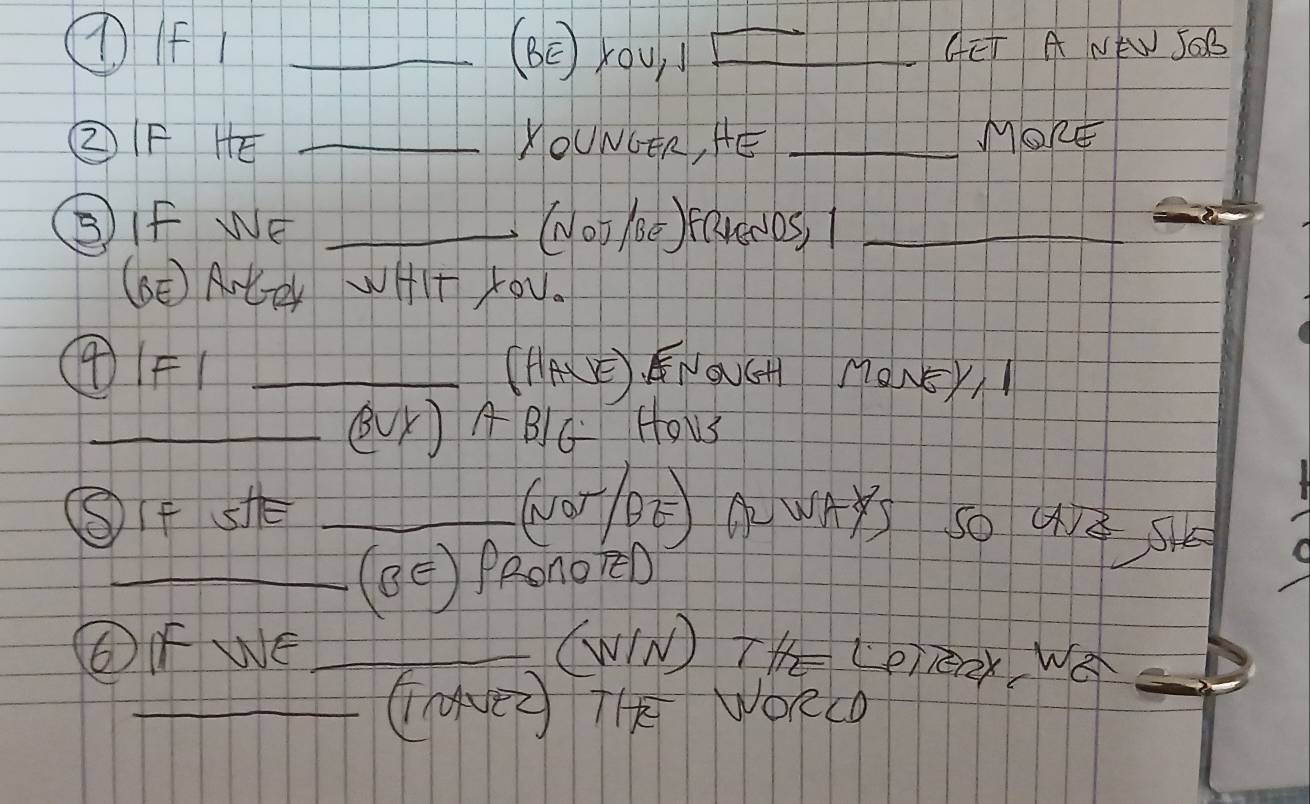 ① IF I ________ (BE) YOU, I ________ GET A NEW JOB
② IF HE ________ YOUNGER, HE ________ MORE
③ IF WE ________ (NOT/BE) FRIENDS, I ________
(BE) ANGRY WHIT YOU.
④ IF I ________ (HAVE) ENOUGH MONEY, I
________ (BUY) A BIG HOUS
⑤ IF SHE ________ (NOT/BE) ALWAYS SO LATE, SHE
________ (BE) PROMOTED
⑥ IF WE ________ (WIN) THE LOTTERY, WE
________ (TRAVEL) THE WORLD